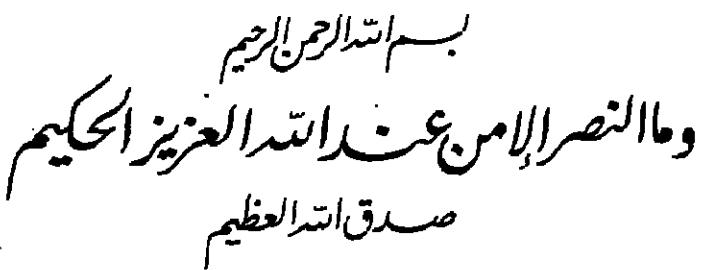 بسم الله الرحمن الرحيم
وما النصر إلا من عند الله العزيز الحكيم
صدق الله العظيم